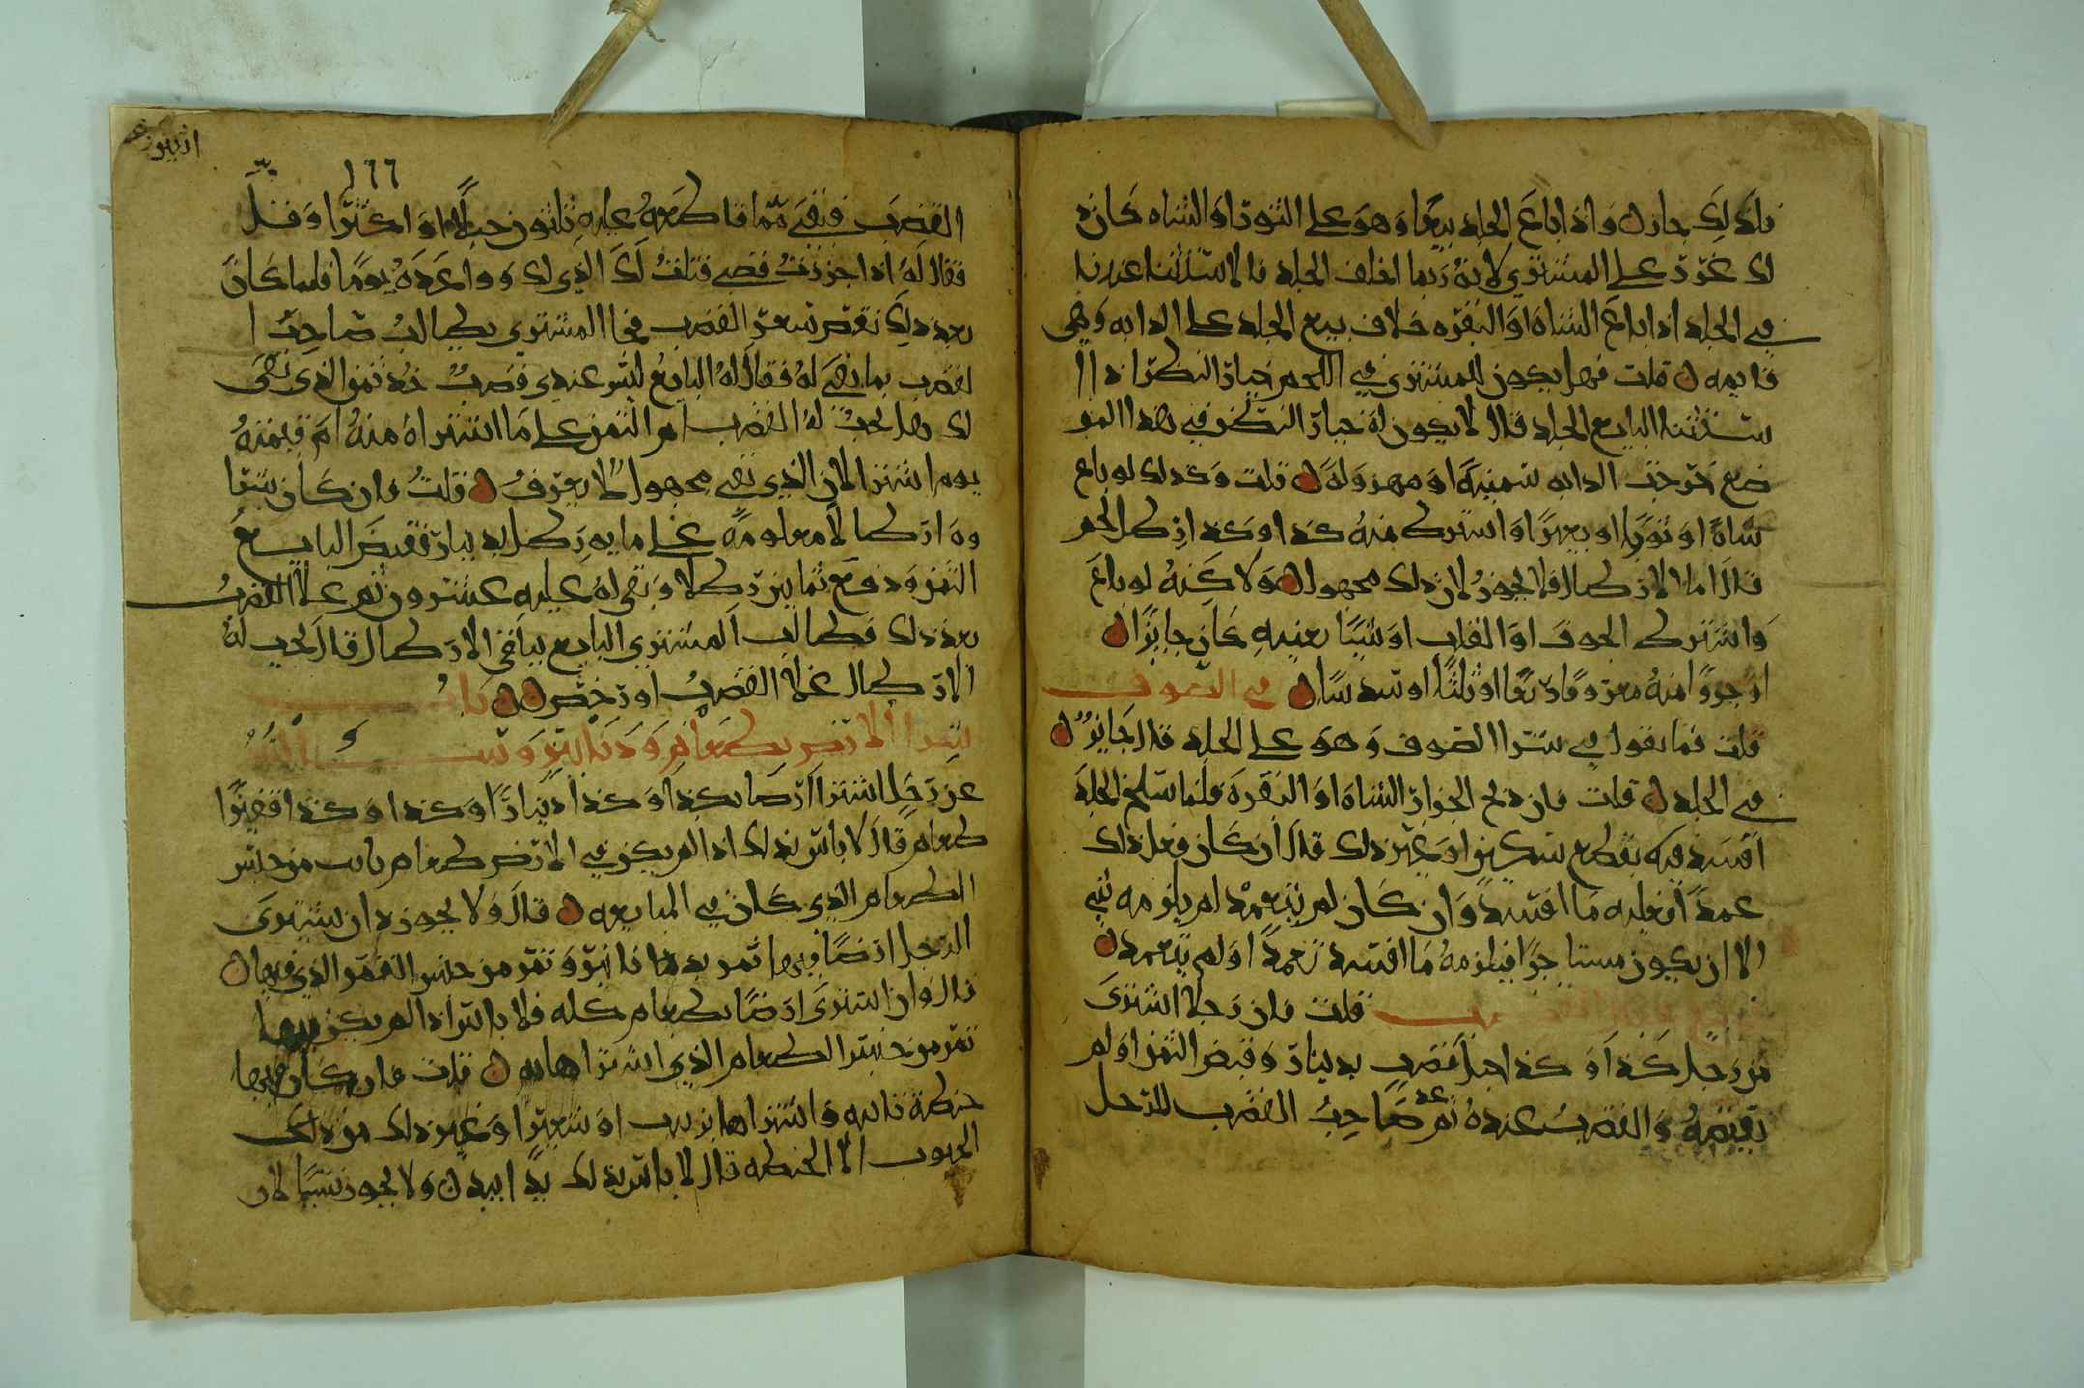 فلذلك جاز ⵔ واذا باع الجلد بيعًا وهو على الثور او الشاه كان ذ
لك غررً على المشتري لانه ربما اختلف الجلد فالاستثنا عندنا
في الجلد اذا باع الشاه او البقره خلاف بيع الجلد على الدابه وهي
قايمه ⵔ قلت فهل يكون للمشتري في اللحم خيار النظر اذا ا
ستثنا البايع الجلد قال لا يكون له خيار النظر في هذا المو
ضع خرجت الدابه سمينة او مهزوله ⵔ قلت وكذلك لو باع
شاة او ثورا او بعيرًا واشترط منه كذا وكذا رطل لحم
قال اما الارطال فلا يجوز لان ذلك مجهول ⵔ ولاكنه لو باع
واشترط الجوف او القلب او شيئًا بعينه كان جايزًا ⵔ
او جزوًا منه معروفًا ربعًا او ثلثًا او سدسًا ⵔ في الصوف
قلت فما تقول في شرا الصوف وهو على الجلد قال جايزٌ ⵔ
في الجلد ⵔ قلت فان ذبح الجزار الشاه او البقره فلما سلخ الجلد
افسد فيه بقطع سكين او غير ذلك قال ان كان فعل ذلك
عمدًا فعليه ما افسد وان كان لم يتعمد لم يلزمه شي
الا ان يكون مستاجرًا فيلزمه ما افسد تعمدًا او لم يتعمد ⵔ
قلت فان رجلًا اشترى
من رجل كذا وكذا حبل قضب بدينار وقبض الثمن او لم
يقبضه والقضب عنده ثم عد صاحب القضب للرجل
١٦٦
القضب فبقي مما قاطعه عليه ثلثون حبلًا او اكثر او قل
فقال له اذا جززت قضبي قتلفت لك الذي لك وواعده يومًا فلما كان
بعد ذلك نقص سعر القضب فجا المشتري يطالب صاحب ا
لقضب بما بقي له فقال له البايع ليس عندي قضب خذ ثمن الذي بقي
لك هل يجب له القضب ام الثمن على ما اشتراه منه ام قيمته
يوم اشترا لان الذي بقي مجهولًا لا يعرف ⵔ قلت فان كان شرا
وه ارطالًا معلومة على مايه رطل بدينار فقبض البايع
الثمن ودفع ثمانين رطلا وبقي له عليه عشرون ثم غلا القضب
بعد ذلك فطالب المشتري البايع بباقي الارطال قال يجب له
الارطال غلا القضب او رخص ⵔⵔ باب
شرا الارض بطعام ودنانير وسـ ـالته
عن رجل اشترا ارضا بكذا وكذا دينارًا وكذا وكذا قفيزًا
طعام قال لا باس بذلك اذا لم يكن في الارض طعام نابت من جنس
الطعام الذي كان في المبايعه ⵔ قال ولا يجوز ان يشتري
الرجل ارضًا فيها ثمر بدنانير وثمر من جنس الثمر الذي فيها ⵔ
قال وان اشترى ارضًا بطعام كله فلا باس اذا لم يكن فيها
ثمر من جنس الطعام الذي اشتراها به ⵔ قلت فان كان فيها
حنطة نابته واشتراها بزبيب او شعيرًا وغير ذلك من ذلك
الحبوب الا الحنطه قال لا باس بذلك يدًا بيد ⵔ ولا يجوز نسيًا لان